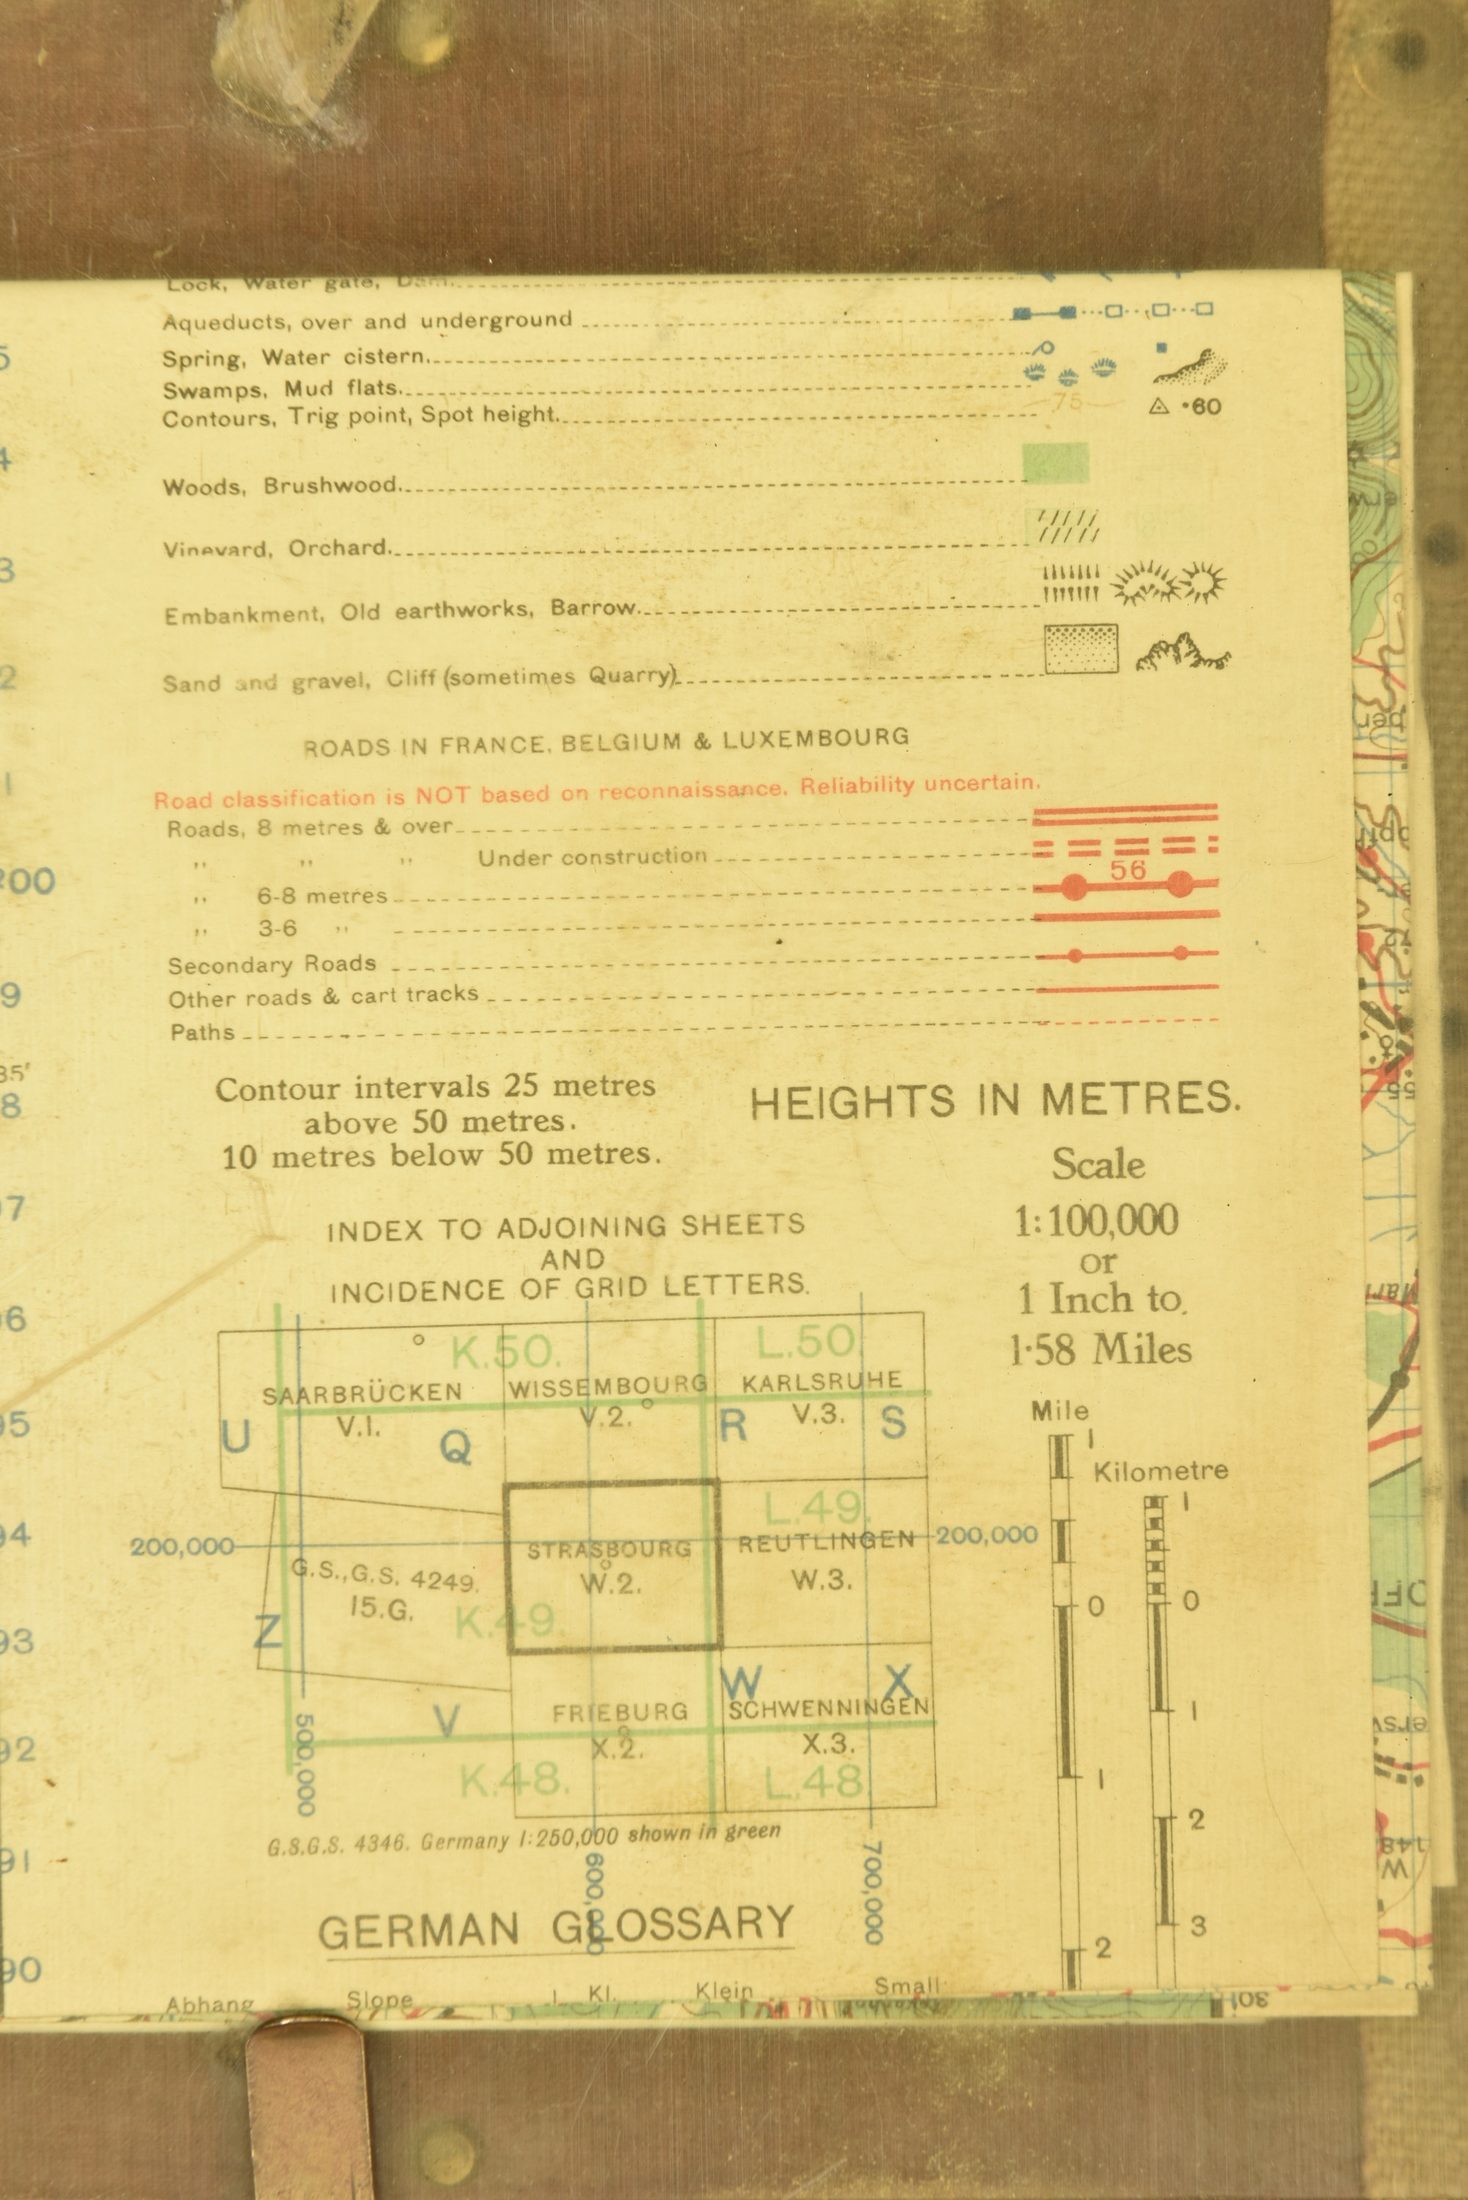 Lock, Water gate, Dam
Aqueducts, over and underground
Spring, Water cistern.
Swamps, Mud flats.
Contours, Trig point, Spot height. 75 •60
Woods, Brushwood.
Vineyard, Orchard.
Embankment, Old earthworks, Barrow.
Sand and gravel, Cliff (sometimes Quarry)
ROADS IN FRANCE, BELGIUM & LUXEMBOURG
Road classification is NOT based on reconnaissance. Reliability uncertain.
Roads, 8 metres & over
,, ,, ,, Under construction
56
,, 6-8 metres
,, 3-6 ,,
Secondary Roads
Other roads & cart tracks
Paths
Contour intervals 25 metres
above 50 metres.
10 metres below 50 metres.
HEIGHTS IN METRES.
Scale
1:100,000
or
1 Inch to
1·58 Miles
INDEX TO ADJOINING SHEETS
AND
INCIDENCE OF GRID LETTERS.
K.50. L.50.
SAARBRÜCKEN WISSEMBOURG KARLSRUHE
V.1. V.2. V.3.
U Q R S
L.49.
200,000 STRASBOURG REUTLINGEN 200,000
G.S.,G.S. 4249. W.2. W.3.
15.G.
Z K.49.
W X
V FRIEBURG SCHWENNINGEN
X.2. X.3.
K.48. L.48.
500,000
600,000
700,000
G.S.G.S. 4346. Germany 1:250,000 shown in green
Mile
1
Kilometre
1
0 0
1
1
2
3
2
GERMAN GLOSSARY
Abhang Slope Kl. Klein Small
5
4
3
2
1
200
9
35'
8
7
6
95
94
93
92
91
90